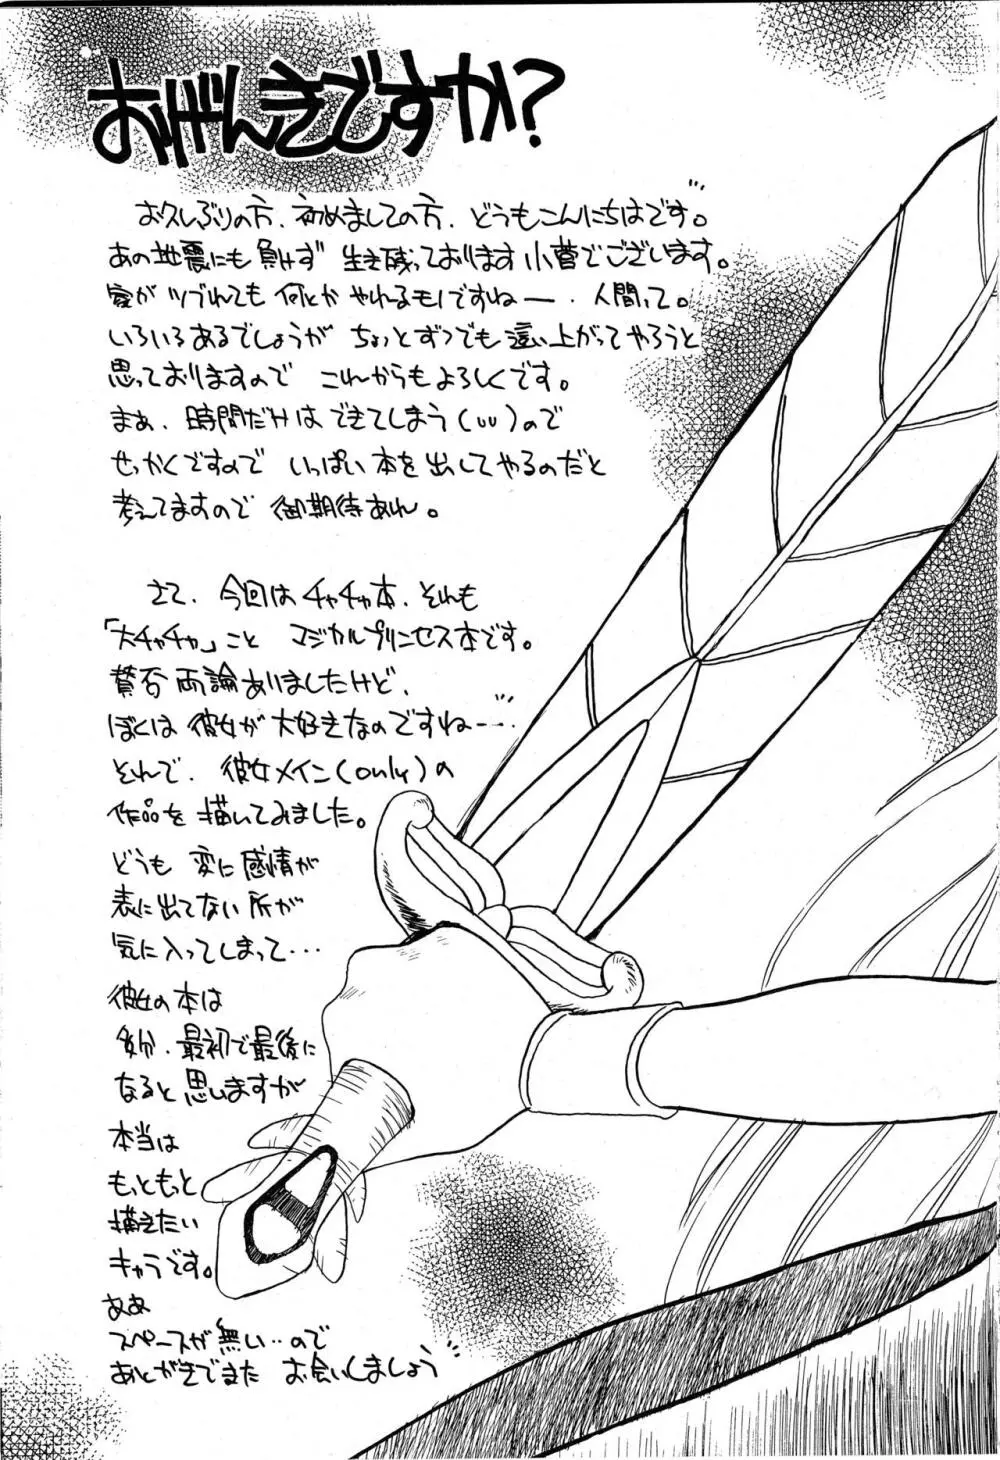 おげんきですか?
お久しぶりの方、初めましての方、どうもこんにちはです。
あの地震にも負けず 生き残っております小菅でございます。
家がツブれても 何とか やれるモノですねー、人間って。
いろいろあるでしょうが ちょっとずつでも這い上がってやろうと
思っておりますので これからもよろしくです。
まぁ、時間だけは できてしまう(いい)ので
せっかくですので いっぱい本を出してやるのだと
考えてますので 御期待あれ。
さて、今回は チャチャ本、それも
「大チャチャ」こと マジカルプリンセス本です。
賛否両論ありましたけど、
ぼくは 彼女が大好きなのですねー…
それで、彼女メイン(only)の
作品を 描いてみました。
どうも 変に感情が
表に出てない所が
気に入ってしまって…
彼女の本は
多分、最初で最後に
なると思いますが
本当は
もっともっと
描きたい
キャラです。
ああ
スペースが無い…ので
あとがきでまた お会いしましょう